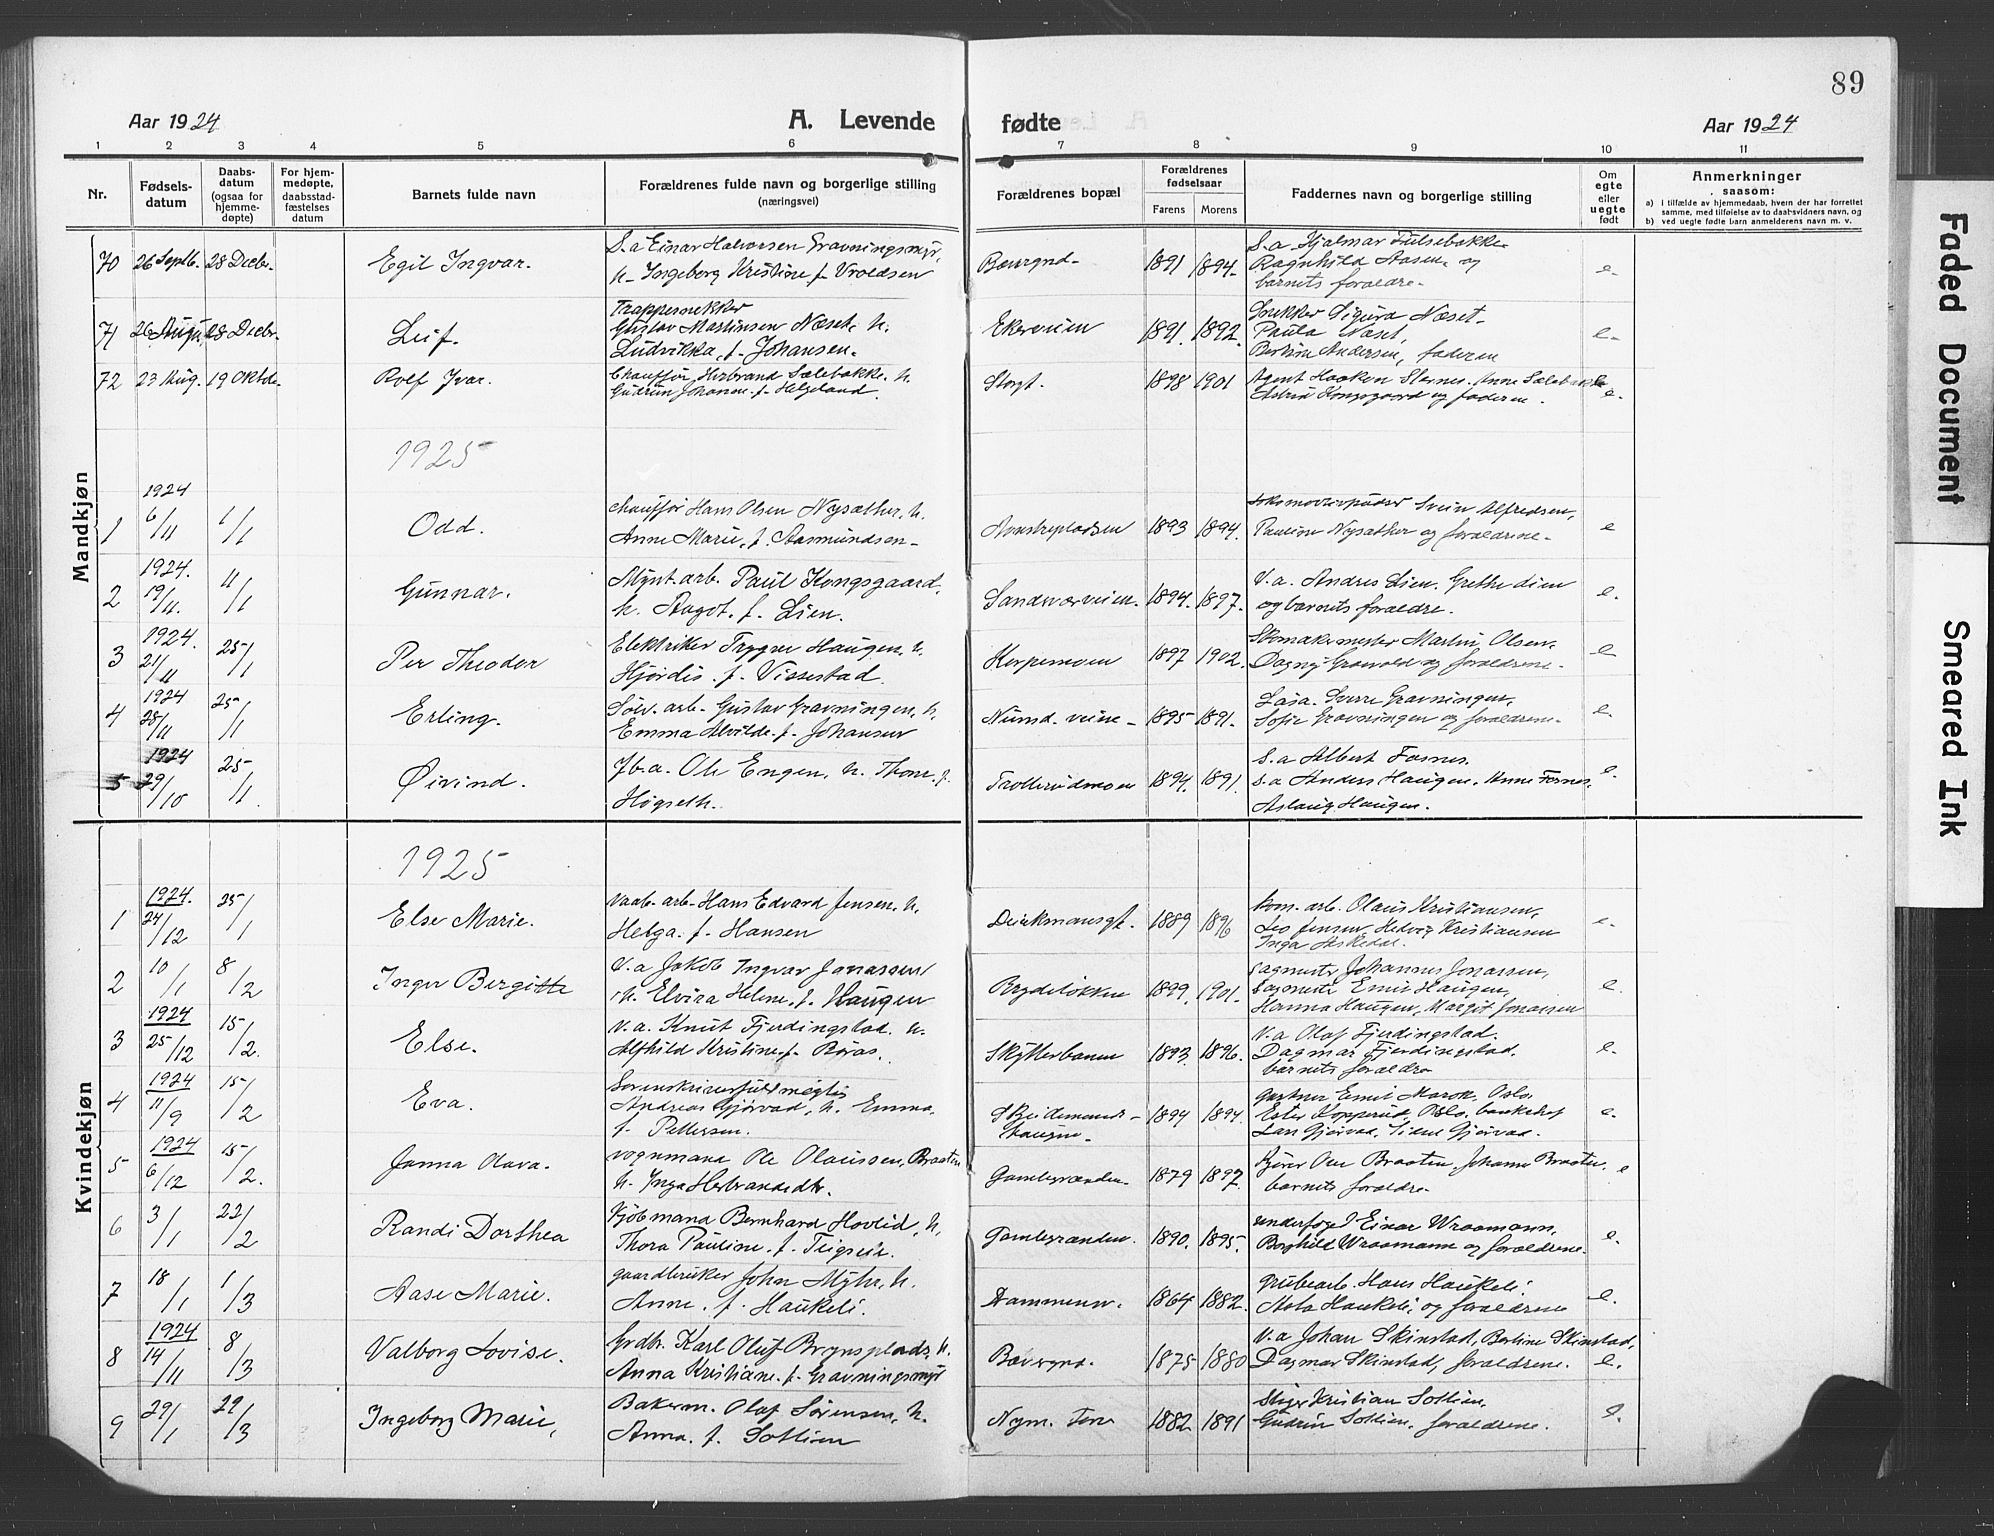 89
Aar 1924
A. Levende
fødte
Aar 1924
1 2 3 4 5 6 7 8 9 10 11
Nr.
Fødsels-
datum
Daabs-
datum
(ogsaa for
hjemme-
døpte)
For hjem-
medøpte,
daabsstad-
fæstelses
datum
Barnets fulde navn
Forældrenes fulde navn og borgerlige stilling
(næringsvei)
Forældrenes bopæl
Forældrenes
fødselsaar
Farens Morens
Faddernes navn og borgerlige stilling
Om
egte
eller
uegte
født
Anmerkninger
saasom:
a) i tilfælde av hjemmedaab, hvem der har forrettet
samme, med tilføielse av to daabsvidners navn, og
b) ved uegte fødte barn anmelderens navn m. v.
Mandkjøn
70 26 Septb. 28 Decbr. Egil Ingvar.
S. a. Einar Halvorsen Gravningsmyr,
h. Ingeborg Kristine f. Vroldsen
1891 1894.
S. a. Hjalmar
Ragnhild Aasen, og
barnets foraldre.
e.
71 26 Aug. 28 Decbr. Leif.
Trappesnekker
Gustav Martinsen Næset, h.
Ludvikka, f. Johansen.
Ekerveien 1891. 1892.
Snekker Sigurd Næset
Paula Næset,
Andersen, faderen
e.
72 23 Aug. 19 Oktbr. Rolf Ivar.
Chauffør Herbrand Sælebakke. h.
Gudrun Johanne f. Helgeland.
Storgt. 1898 1901
Agent Haakon Anne Sælebakke
Astrid Kongsgaard og faderen.
e.
1925
1 1924 6/11 1/1 Odd.
Chauffør Hans Olsen Nysæther, h.
Anne Marie, f. Aasmundsen
1893 1894.
Lokomotivpudser Svein Alfredsen,
Pauline Nysæther og foraldrene.
e
2 1924. 19/11. 11/1 Gunnar.
Mynt. arb. Paul Kongsgaard,
h. Aagot. f. Lien.
Sandsværveien. 1894. 1897.
V. a. Andres Lien. Grethe Lien
og barnets foraldre.
e.
3 1924. 21/11 25/1 Per Theodor
Elektriker Trygve Haugen, h.
Hjørdis. f. Vissestad.
1897 1902.
Skomakermester Martin Olsen,
Dagny og foraldrene.
e
4 1924 28/11 25/1 Erling.
Sølv. arb. Gustav Gravningen, h.
Emma Alvilde. f. Johansen
Numd. veien 1895 1891.
Sverre Gravningen,
Sofie Gravningen og foraldrene.
e.
5 1924 29/10 25/1. Øivind.
Jb. a. Ole Engen, h. Thone. f.
Høgseth.
Trollerudmoen 1894. 1891.
S. a. Albert Fosnes.
S. a. Anders Haugen. Anne Fosnes.
Aslaug Haugen.
e.
Kvindekjøn
1925
1 1924. 24/12 25/1 Else Marie.
Vaab. arb. Hans Edvard Jensen. h.
Helga. f. Hansen
Dickmansgt. 1889 1896
Kom. arb. Olaus Kristiansen,
Leo Jensen, Hedvig Kristiansen
Inga
e.
2 10/1 8/2 Inger Bergitte
V. a. Jakob Ingvar Jonassen
h. Elvira Helene. f. Haugen
Brydeløkken 1899. 1901.
Sagmester Johannes Jonassen,
Emil Haugen,
Hanna Haugen, Margit Jonassen
e.
3 1924 25/12 15/2. Else.
V. a. Knut Fjerdingstad. h.
Alfhild Kristine. f. Røraas.
Skytterbanen 1893. 1896.
V. a. Olaf Fjerdingstad.
Dagmar Fjerdingstad.
barnets foraldre
e.
4 1924 11/9 15/2 Eva.
Sorenskriverfuldmægtig
Andreas Gjørvad, h. Emma.
f. Pettersen.
1894 1894.
Gartner Emil Oslo.
Ester Kopperud, Oslo,
Lars Gjørvad, Gjørvad.
e.
5 1924 6/12 15/2. Janna Olava.
Vognmand Ole Olaussen, Braaten
h. Inga
Gamlegrænden. 1879 1897.
Kjører Ole Braaten. Johanne Braaten.
barnets foraldre
e
6 3/1 22/2 Randi Dorthea
Kjøbmand Bernhard Hovlid, h.
Thora Pauline. f. Teigseth.
Gamlegrænden. 1890. 1895.
Underfoged Einar Wraamann,
Borghild Wraamann og foraldrene.
e.
7 18/1 1/3 Aase Marie.
Gaardbruker John Myhr, h.
Anne. f. Haukeli.
1864 1882.
Grubearb. Hans Haukeli.
Haukeli, og foraldrene
e.
8 1924 14/11 8/3 Valborg Lovise.
Grdbr. Karl Oluf Brynsplads, h.
Anna Kristiane. f. Gravningsmyr
1875 1880
V. a. Johan Skinstad, Bertine Skinstad,
Dagmar Skinstad, foraldrene.
e.
9 29/1 22/3 Ingeborg Marie,
Bakerm. Olaf Sørensen, h.
Anna. f. Sollien
1882 1891
Stiger Kristian Sollien,
Gudrun Sollien, foraldrene.
e.
Faded Document
Smeared Ink